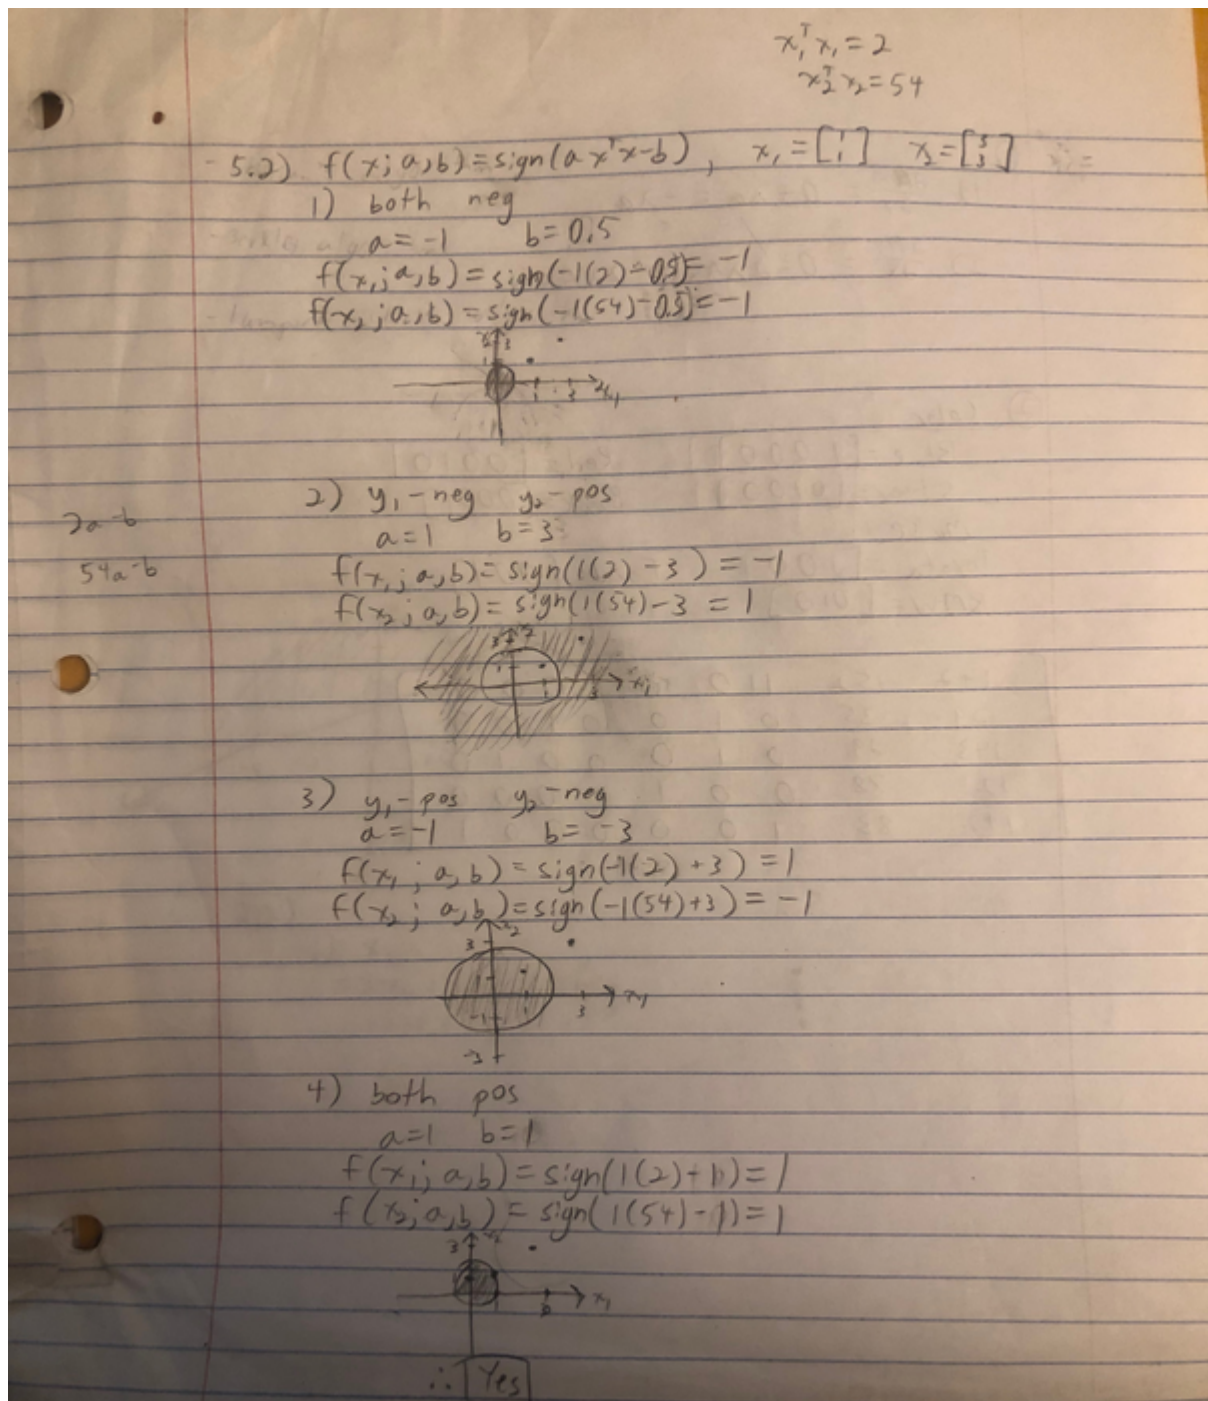 x₁ᵀx₁ = 2
x₂ᵀx₂ = 54
5.2) f(x; a, b) = sign(a xᵀx - b) , x₁ = [1 1] x₂ = [3 3]
1) both neg
a = -1 b = 0.5
f(x₁; a, b) = sign(-1(2) - 0.5) = -1
f(x₂; a, b) = sign(-1(54) - 0.5) = -1
x₂ 3
1
1 3 x₁
2) y₁ - neg y₂ - pos
2a-b
a = 1 b = 3
54a-b
f(x₁; a, b) = sign(1(2) - 3) = -1
f(x₂; a, b) = sign(1(54) - 3 = 1
3 x₂
1
1 3 x₁
3) y₁ - pos y₂ - neg
a = -1 b = -3
f(x₁; a, b) = sign(-1(2) + 3) = 1
f(x₂; a, b) = sign(-1(54) + 3) = -1
3 x₂
1
3 x₁
-1
-3
4) both pos
a = 1 b = 1
f(x₁; a, b) = sign(1(2) + 1) = 1
f(x₂; a, b) = sign(1(54) - 1) = 1
3 x₂
1 x₁
∴ Yes